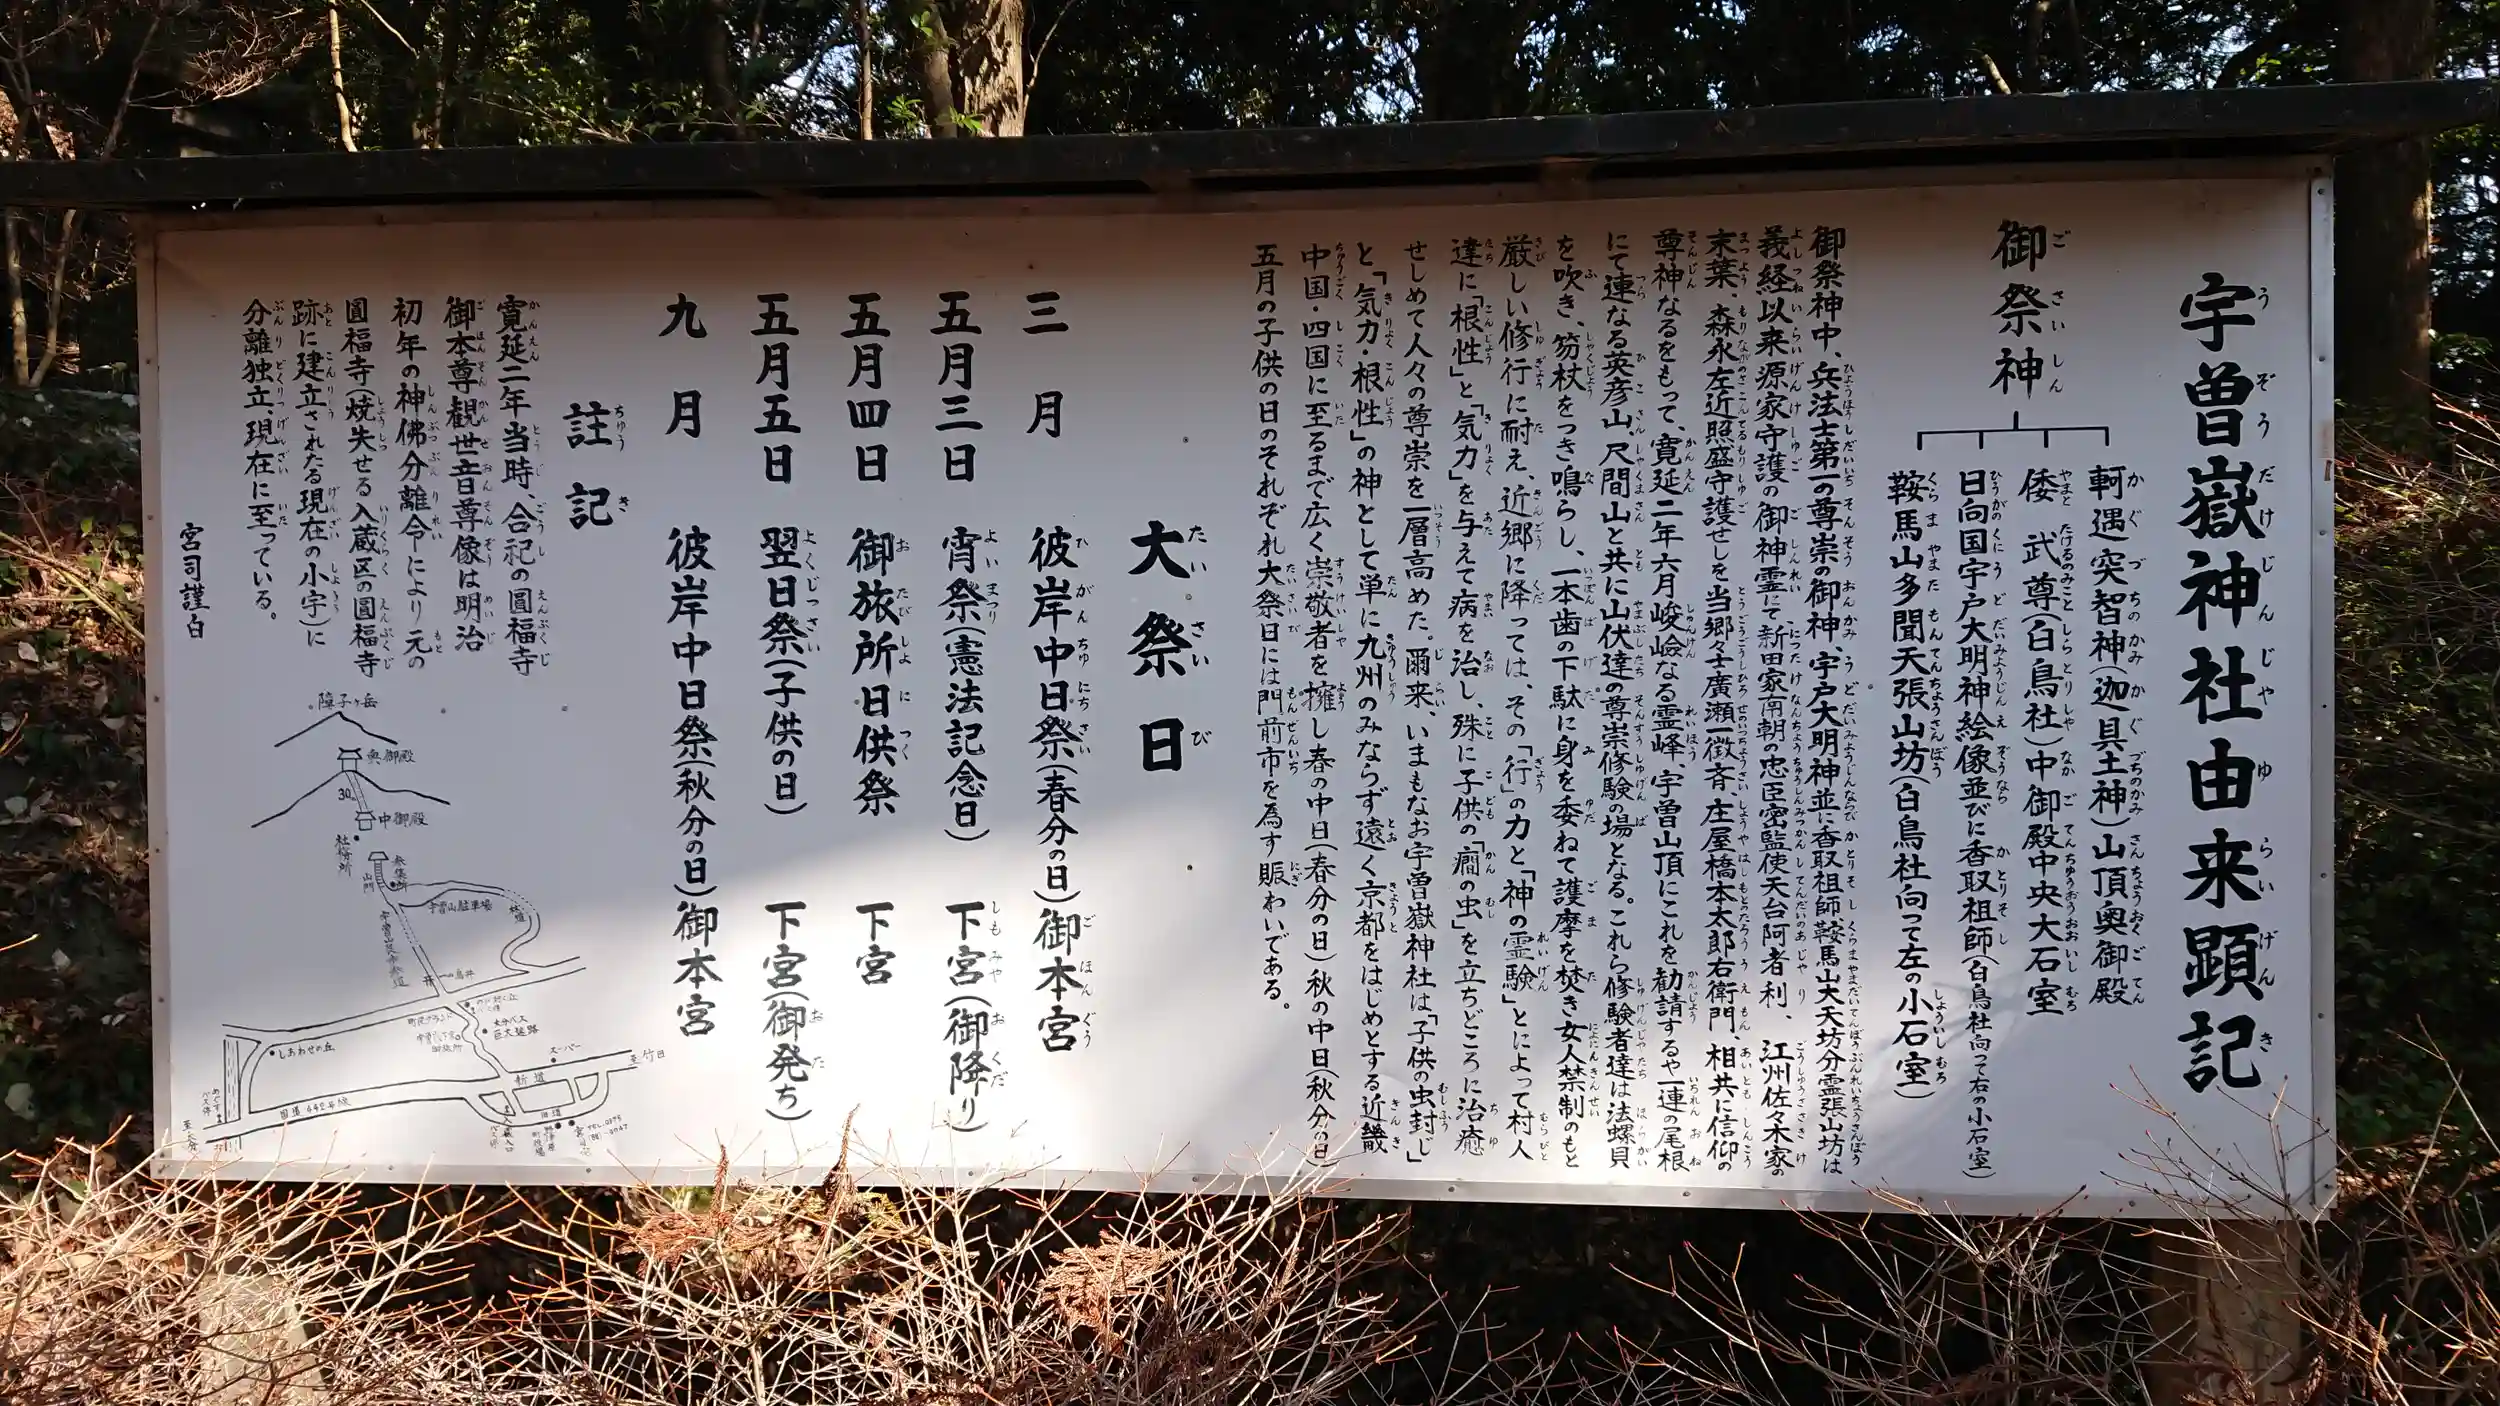 宇曽嶽神社由来顕記
御祭神
軻遇突智神(迦具土神)山頂奥御殿
倭武尊(白鳥社)中御殿中央大石室
日向国宇戸大明神絵像並びに香取祖師(白鳥社向って右の小石室)
鞍馬山多聞天張山坊(白鳥社向って左の小石室)
御祭神中、兵法士第一の尊崇の御神、宇戸大明神並に香取祖師、鞍馬山大天坊分霊張山坊は
義経以来源家守護の御神霊にて新田家南朝の忠臣密監使天台阿者利、江州佐々木家の
末葉、森永左近照盛守護せしを当郷々士廣瀬一徴斉、庄屋橋本太郎右衛門、相共に信仰の
尊神なるをもって、寛延二年六月峻嶮なる霊峰、宇曽山頂にこれを勧請するや一連の尾根
にて連なる英彦山、尺間山と共に山伏達の尊崇修験の場となる。これら修験者達は法螺貝
を吹き、笏杖をつき鳴らし、一本歯の下駄に身を委ねて護摩を焚き女人禁制のもと
厳しい修行に耐え、近郷に降っては、その「行」の力と「神の霊験」とによって村人
達に「根性」と「気力」を与えて病を治し、殊に子供の「癇の虫」を立ちどころに治癒
せしめて人々の尊崇を一層高めた。爾来、いまもなお宇曽嶽神社は「子供の虫封じ」
と「気力・根性」の神として単に九州のみならず遠く京都をはじめとする近畿
中国・四国に至るまで広く崇敬者を擁し春の中日(春分の日)秋の中日(秋分の日)
五月の子供の日のそれぞれ大祭日には門前市を為す賑わいである。
大祭日
三月 彼岸中日祭(春分の日)御本宮
五月三日 宵祭(憲法記念日) 下宮(御降り)
五月四日 御旅所日供祭 下宮
五月五日 翌日祭(子供の日) 下宮(御発ち)
九月 彼岸中日祭(秋分の日)御本宮
註記
寛延二年当時、合祀の圓福寺
御本尊観世音尊像は明治
初年の神佛分離令により元の
圓福寺(焼失せる入蔵区の圓福寺
跡に建立されたる現在の小宇)に
分離独立、現在に至っている。
宮司謹白
障子ヶ岳
奥御殿
中御殿
社務所
参集所
山門
宇曽山駐車場
林道
一の鳥居
町民グランド
大分バス
しあわせの丘
スーパー
至竹田
新道
国道442号線
旧道
バス停
至大分